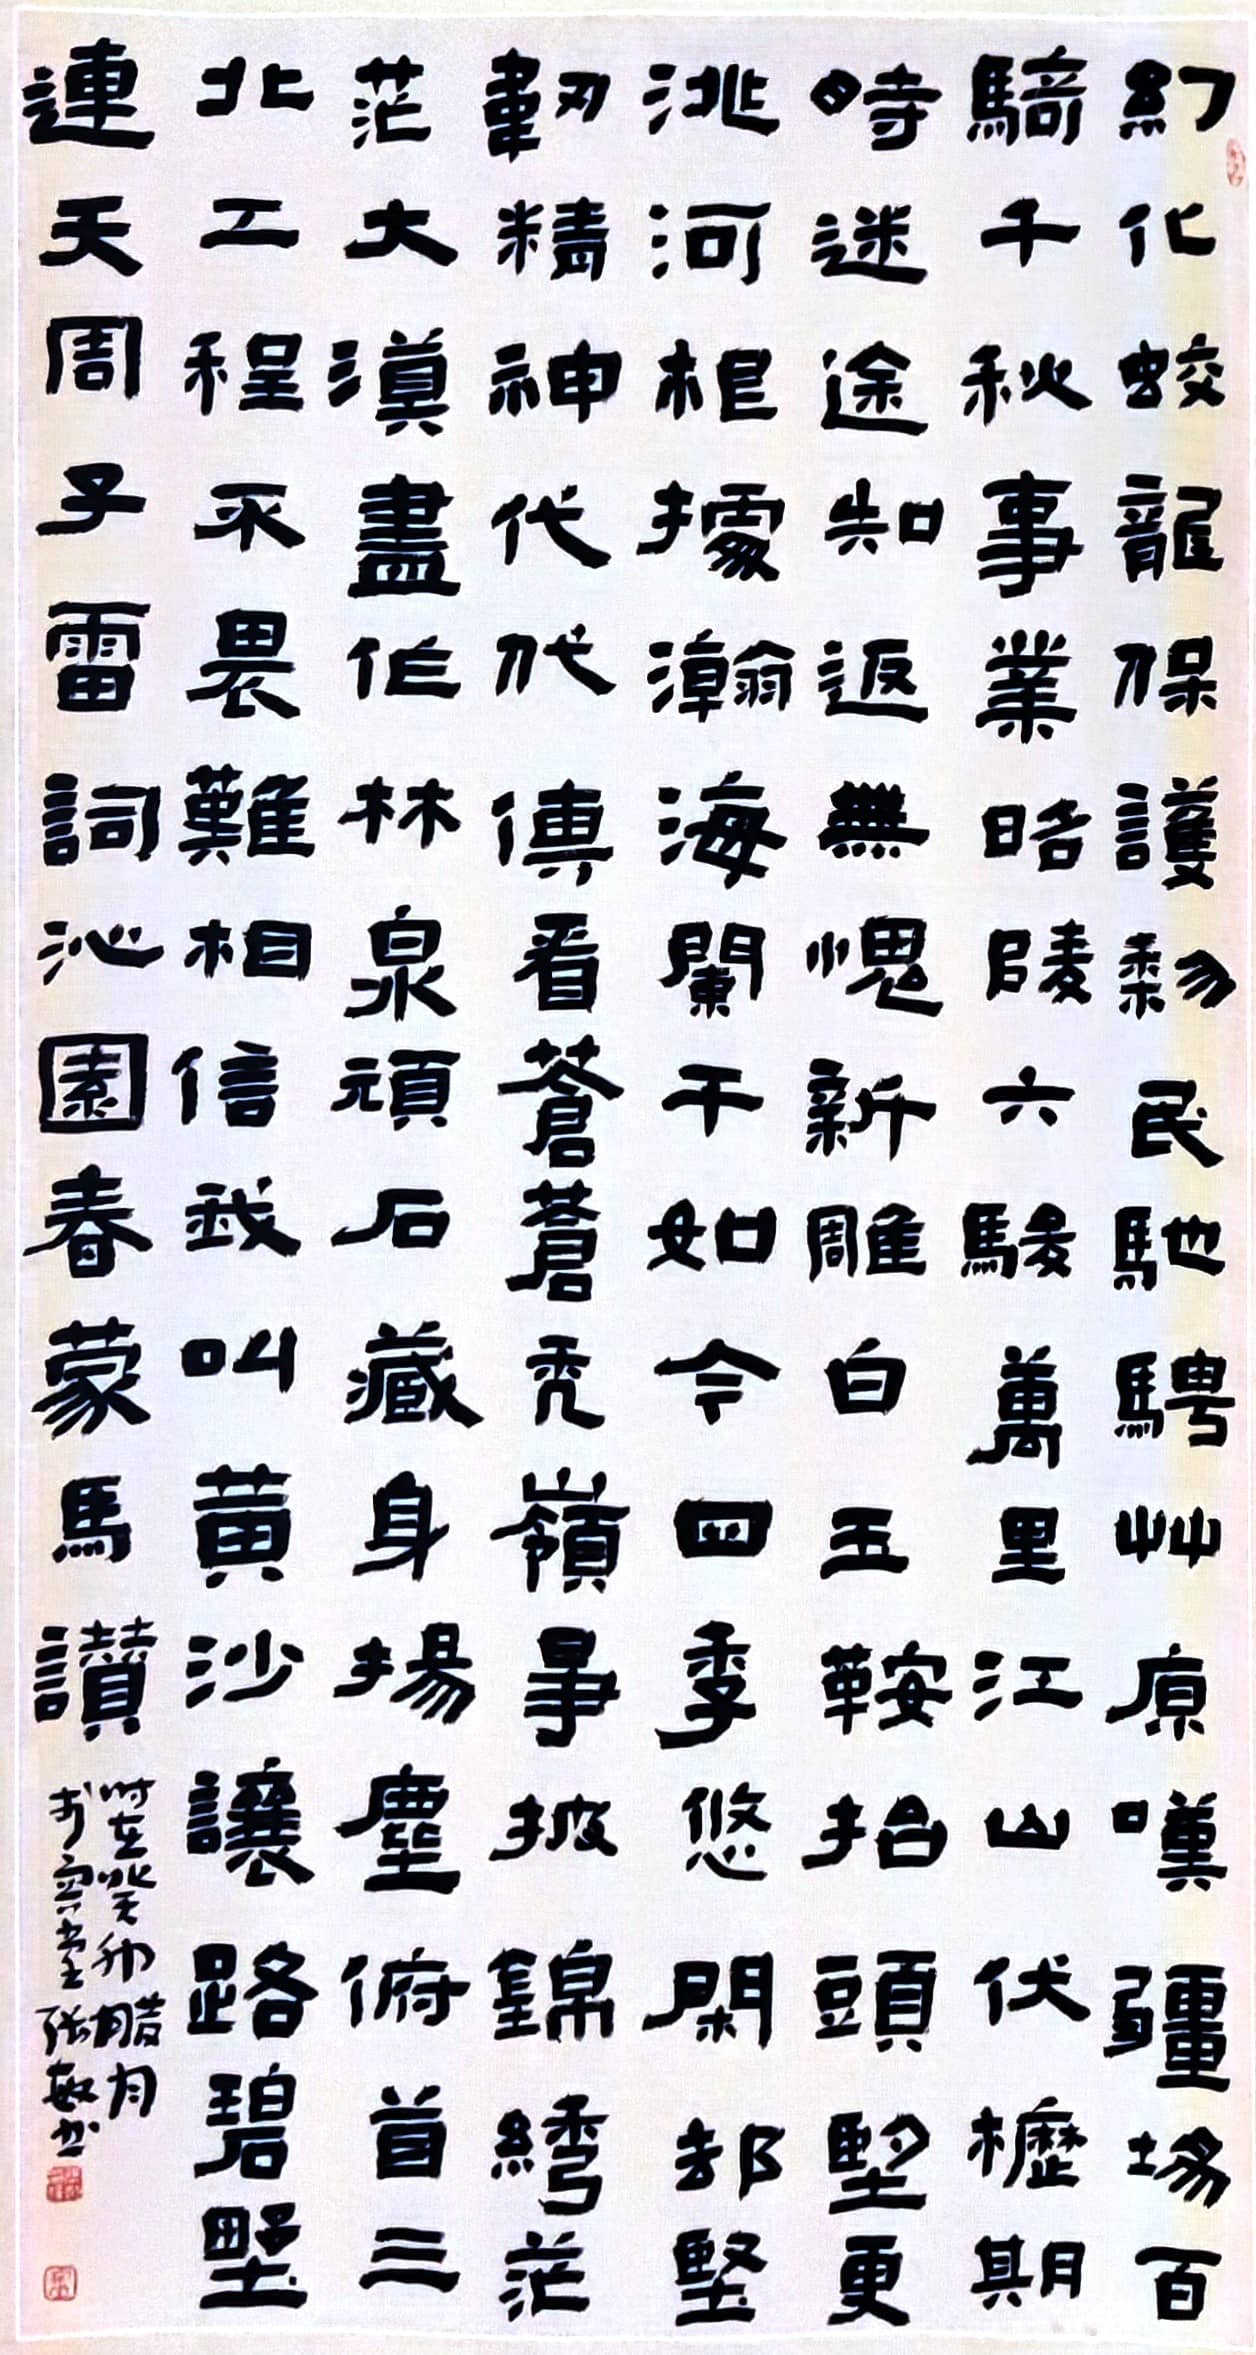 幻化蛟龍保護黎民馳騁艸原嘆疆場百
騎千秋事業昭陵六駿萬里江山伏櫪期
時迷途知返無愧新雕白玉鞍抬頭望更
洮河根據瀚海闌干如令四季悠閑却堅
韌精神代代傳看蒼蒼禿嶺事披錦繡茫
茫大漠盡作林泉頑石藏身揚塵俯首三
北工程不畏難相信我叫黃沙讓路碧野
連天周子雷詞沁園春蒙馬讚
時在癸卯臘月
於堂張敏書